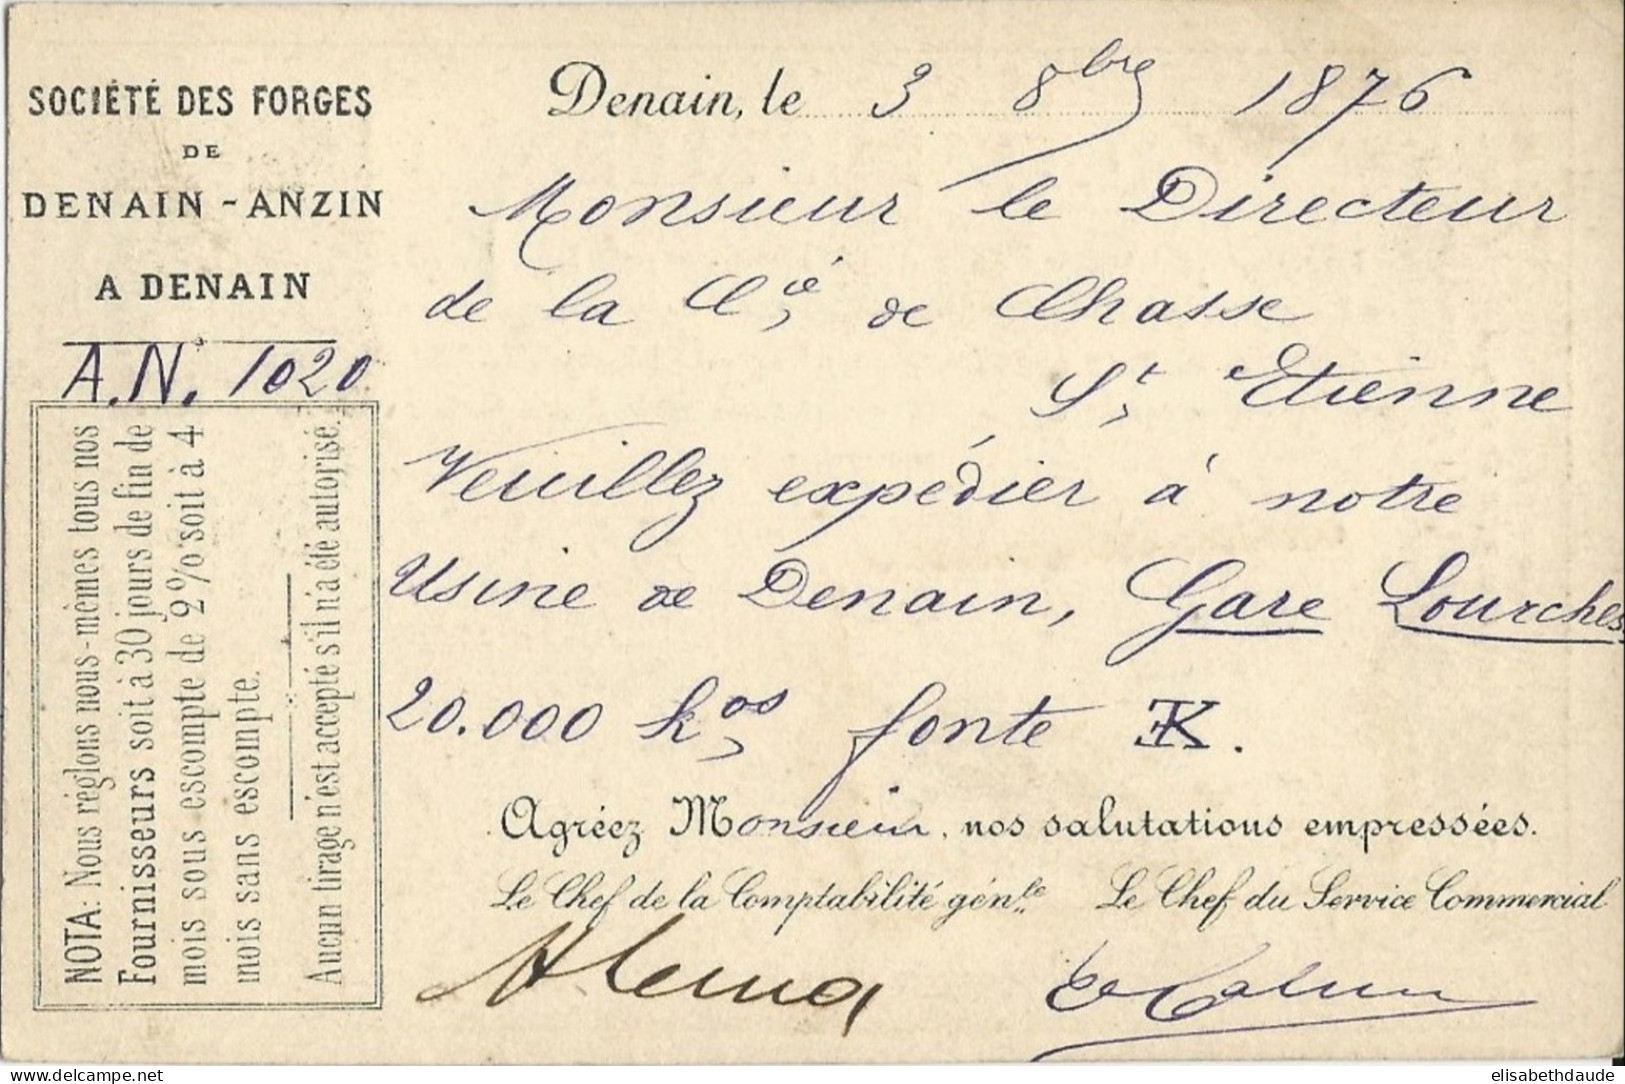 SOCIÉTÉ DES FORGES
DE
DENAIN - ANZIN
A DENAIN
A.N. 1020
NOTA: Nous réglons nous-mêmes tous nos
Fournisseurs soit à 30 jours de fin de
mois sous escompte de 2% soit à 4
mois sans escompte.
Aucun tirage n'est accepté s'il n'a été autorisé.
Denain, le 3 8bre 1876
Monsieur le Directeur
de la Cie de Chasse
St Etienne
Veuillez expédier à notre
Usine de Denain, Gare Lourches
20.000 kos fonte
Agréez Monsieur, nos salutations empressées.
Le Chef de la Comptabilité génle Le Chef du Service Commercial
delcampe.net
elisabethdaude